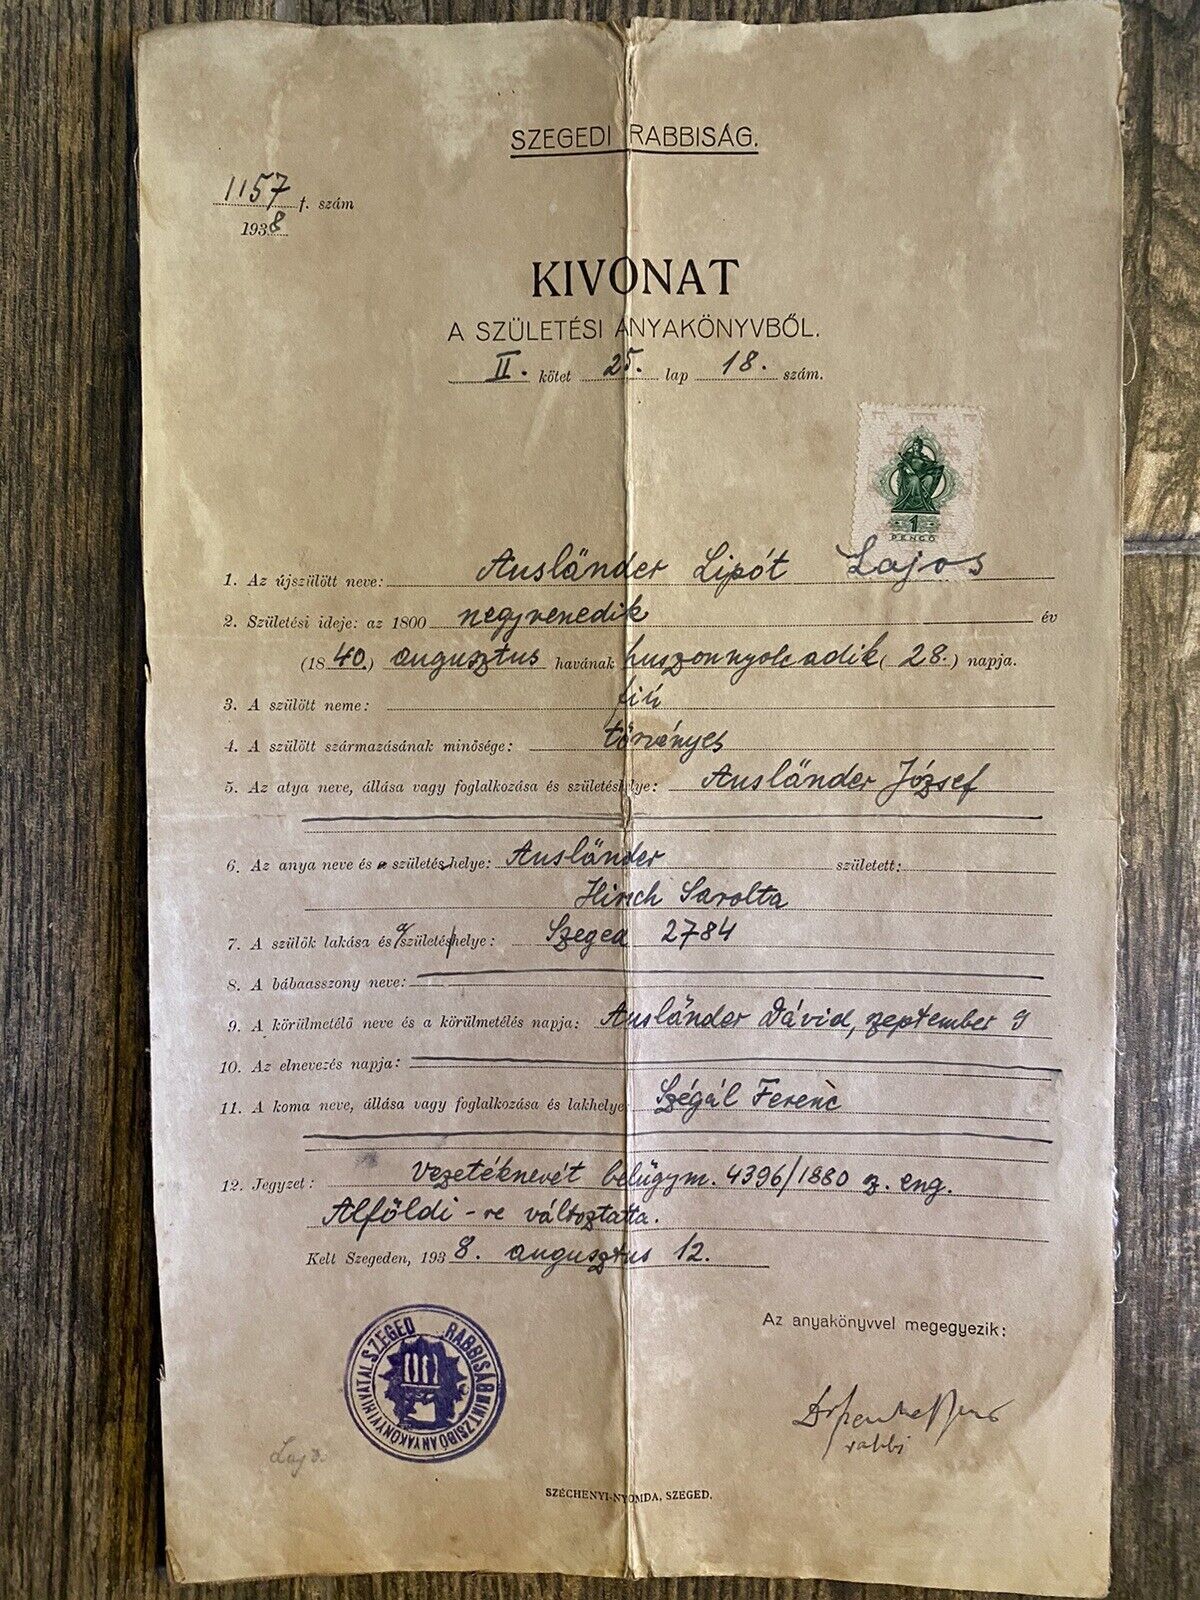 SZEGEDI RABBISÁG.
1157 f. szám
1938
KIVONAT
A SZÜLETÉSI ANYAKÖNYVBŐL.
II. kötet 25. lap 18. szám.
1 PENGŐ
1. Az újszülött neve: Ausländer Lipót Lajos
2. Születési ideje: az 1800 negyvenedik év
(1840.) augusztus havának huszonnyolcadik (28.) napja.
3. A szülött neme: fiú
4. A szülött származásának minősége: törvényes
5. Az atya neve, állása vagy foglalkozása és születéshelye: Ausländer József
6. Az anya neve és születés helye: Ausländer született:
Hirsch Sarolta
7. A szülők lakása és a születés helye: Szeged 2784
8. A bábaasszony neve:
9. A körülmetélő neve és a körülmetélés napja: Ausländer Dávid, szeptember 9
10. Az elnevezés napja:
11. A koma neve, állása vagy foglalkozása és lakhelye: Szégál Ferenc
12. Jegyzet: Vezetéknevét belügym. 4396/1880 sz. eng.
Alföldi-re változtatta.
Kelt Szegeden, 1938. augusztus 12.
Az anyakönyvvel megegyezik:
SZEGED RABBISÁG MINT ZSIDÓ ANYAKÖNYVI HIVATAL
rabbi
SZÉCHENYI-NYOMDA, SZEGED.